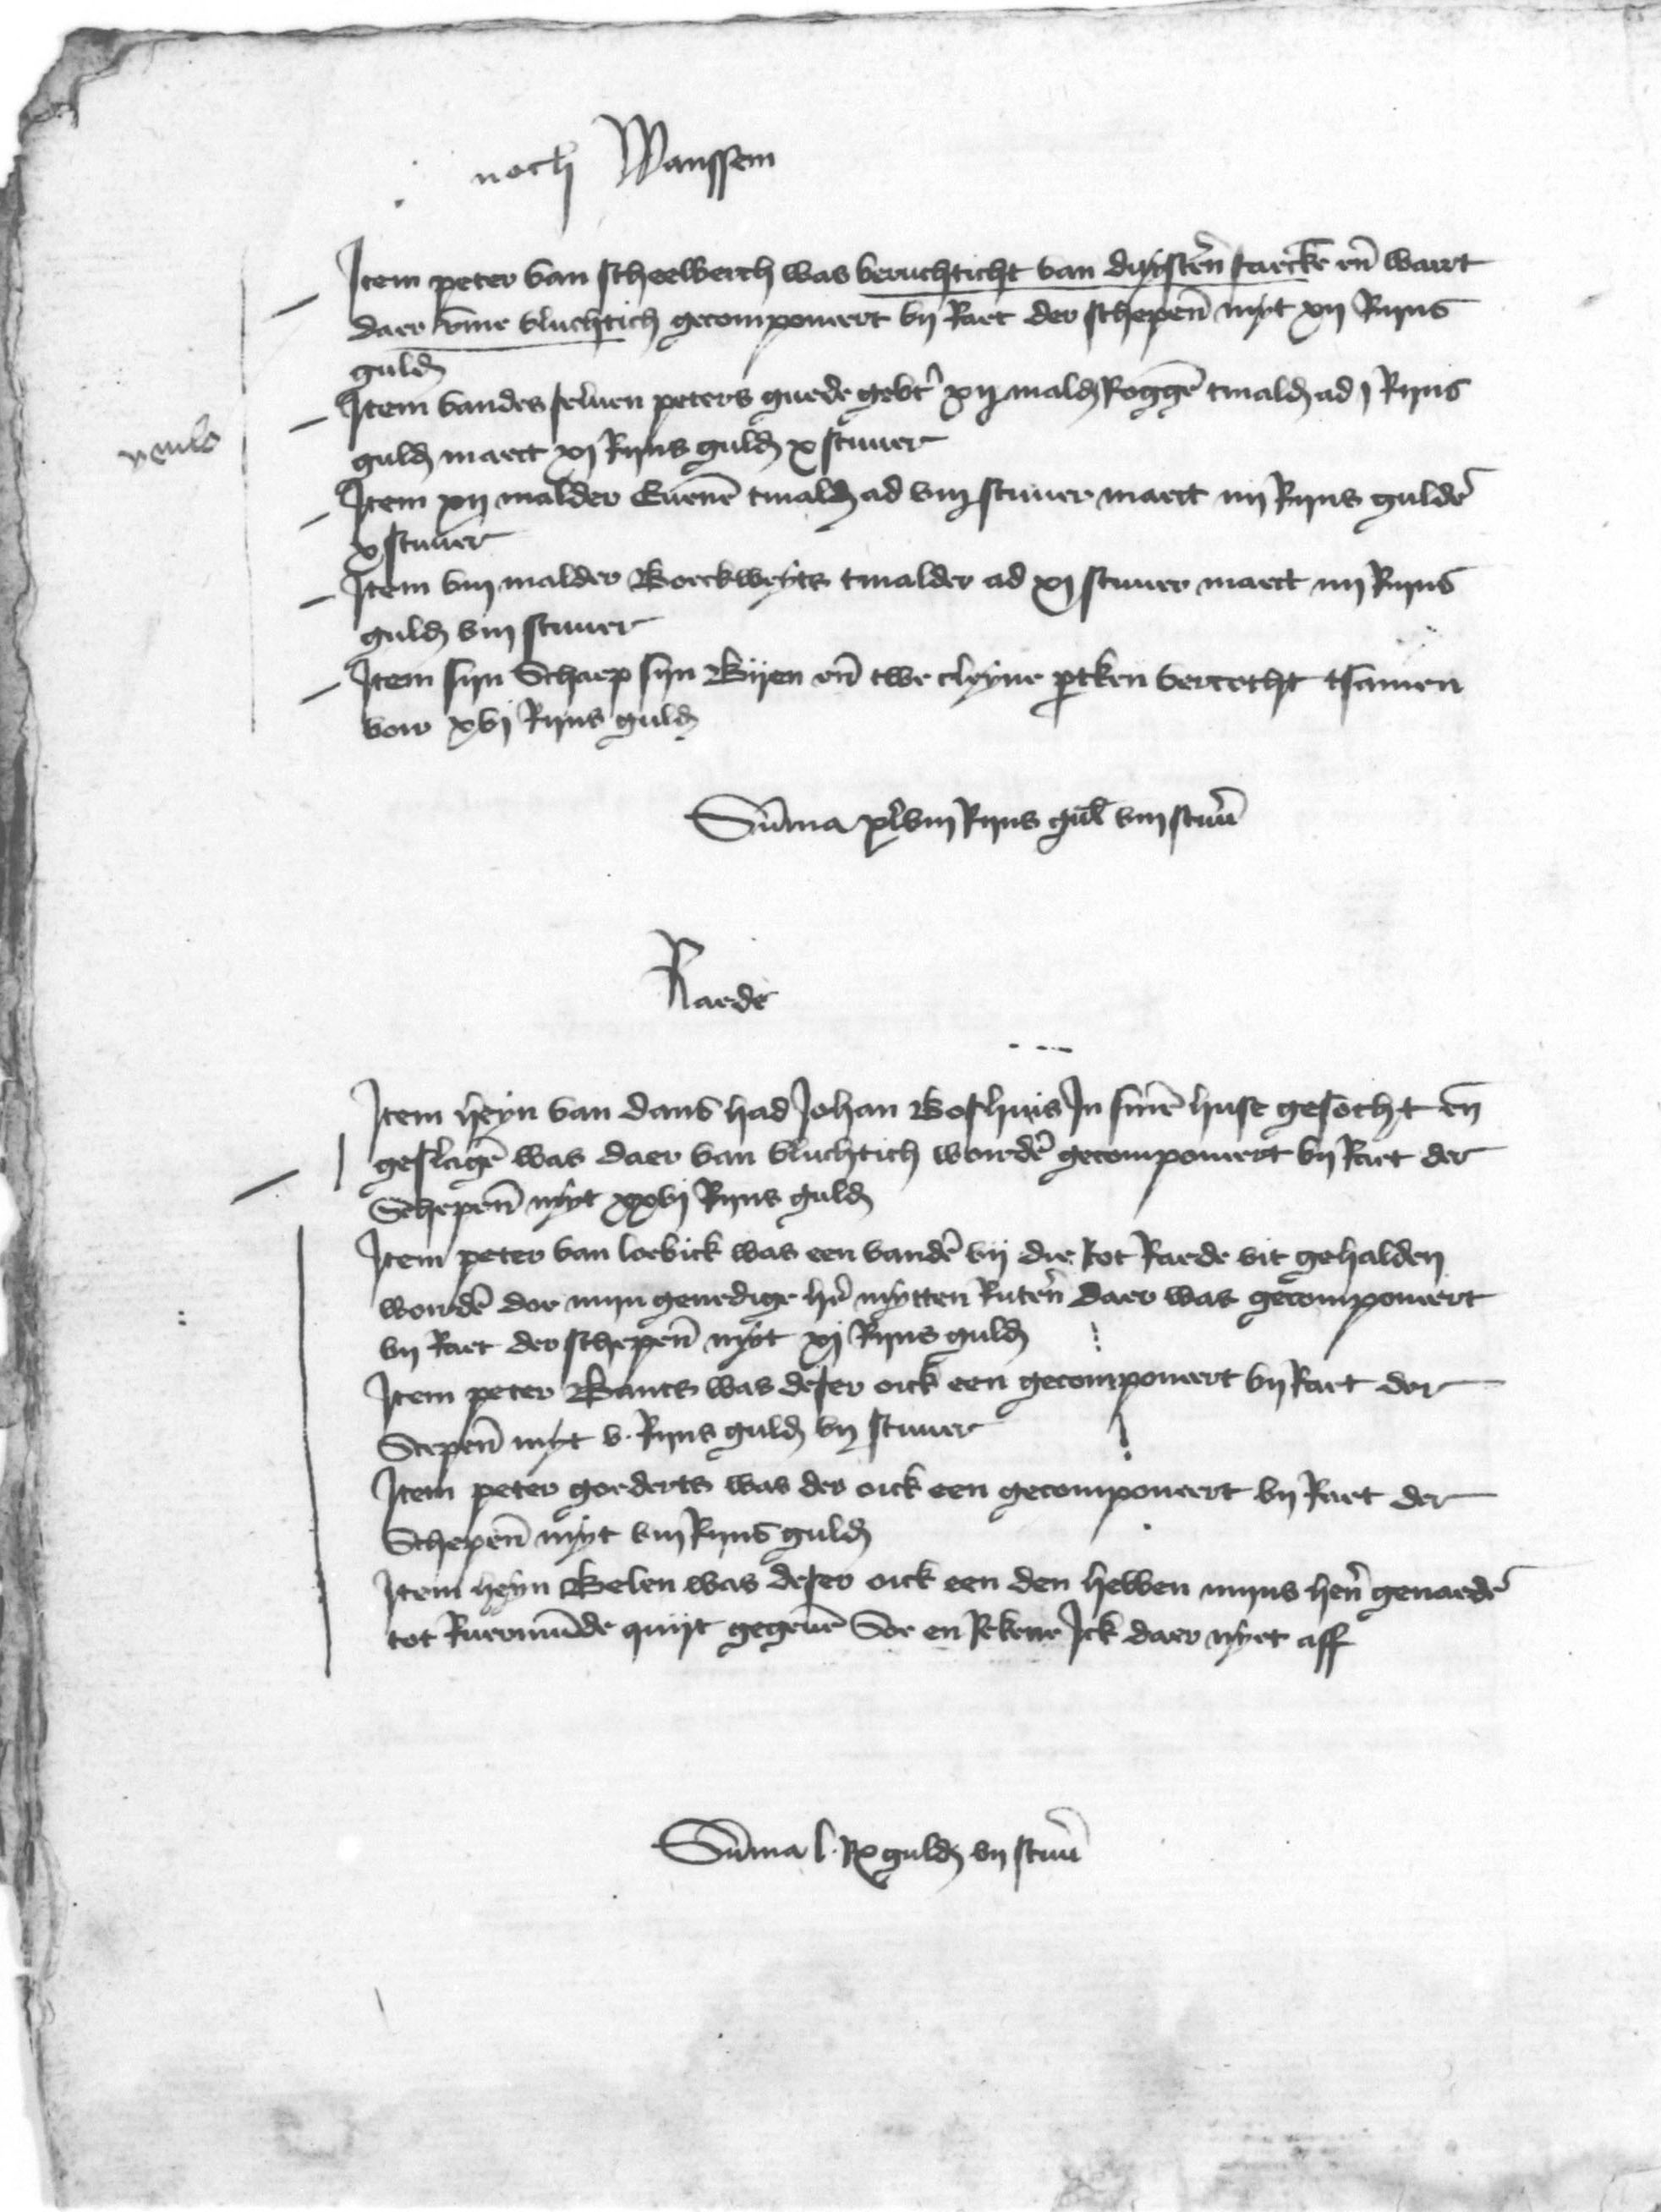 noch Wanssem
Item peter van scheelberch was beruchticht van duysterñ saeckē eñ waert
daer om̄e vluchtich gecomponeert bij Raet der schepeñ myt xij Rijns
guld
Item vandes seluen peters guede gebt xij mald Roggē tmald ad j Rijns
guld maect xj Rijns guld x stuuer
venlo
Item xij malder Euenē tmald ad viij stuuer maect iiij Rijns guldē
x stuuer
Item viij malder Boeckweyts tmalder ad xj stuuer maect iiij Rijns
guld viij stuuer
Item sijn Schaep sijn Bijen eñ twe cleyne vercocht tsamen
voir xvj Rijns guld
Sum̄a xlviij Rijns gul viij stuū
Raede
Item heyn van dans had Johan Boshuis In sinē huse gesocht eñ
geslagē was daer van vluchtich wordē gecomponeert bij Raet der
Schepeñ myt xxvj Rijns guld
Item peter van loebick was een vandē vij die tot Raede vit gehalden
wordē dor mijn genedige hr̄ mytten Ruterñ daer was gecomponeert
bij Raet der schepeñ myt xj Rijns guld
Item peter Bants was deser oick een gecomponeert bij Raet der
Scepeñ myt v. Rijns guld vij stuuer
Item peter goederts was der oick een gecomponeert bij Raet der
Schepeñ myt viij Rijns guld
Item heyn Belen was deser oick een den hebben mijns heñ genaedē
tot Ruermūde quijt gegeuē Soe en Rekene Ick daer nyet aff
Sum̄a l. R guld vij stuū